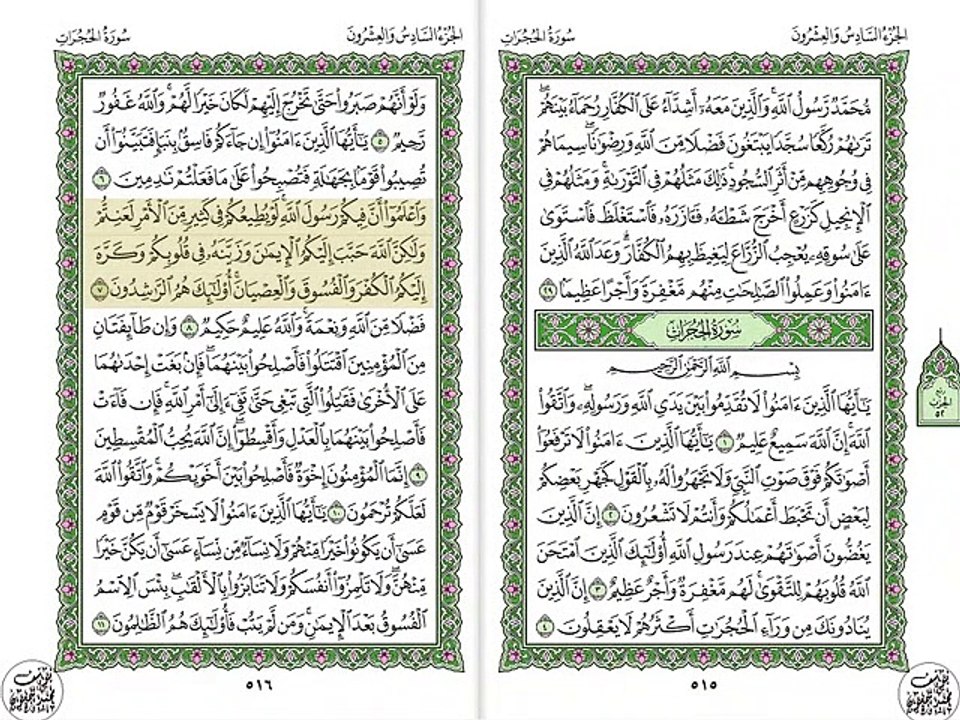 الجزء السادس والعشرون سورة الحجرات
مُّحَمَّدٌ رَّسُولُ ٱللَّهِ وَٱلَّذِينَ مَعَهُۥٓ أَشِدَّآءُ عَلَى ٱلْكُفَّارِ رُحَمَآءُ بَيْنَهُمْ
تَرَىٰهُمْ رُكَّعًا سُجَّدًا يَبْتَغُونَ فَضْلًا مِّنَ ٱللَّهِ وَرِضْوَٰنًا سِيمَاهُمْ
فِى وُجُوهِهِم مِّنْ أَثَرِ ٱلسُّجُودِ ذَٰلِكَ مَثَلُهُمْ فِى ٱلتَّوْرَىٰةِ وَمَثَلُهُمْ فِى
ٱلْإِنجِيلِ كَزَرْعٍ أَخْرَجَ شَطْـَٔهُۥ فَـَٔازَرَهُۥ فَٱسْتَغْلَظَ فَٱسْتَوَىٰ
عَلَىٰ سُوقِهِۦ يُعْجِبُ ٱلزُّرَّاعَ لِيَغِيظَ بِهِمُ ٱلْكُفَّارَ وَعَدَ ٱللَّهُ ٱلَّذِينَ
ءَامَنُوا۟ وَعَمِلُوا۟ ٱلصَّٰلِحَٰتِ مِنْهُم مَّغْفِرَةً وَأَجْرًا عَظِيمًۢا ٢٩
سورة الحجرات
بِسْمِ ٱللَّهِ ٱلرَّحْمَٰنِ ٱلرَّحِيمِ
يَٰٓأَيُّهَا ٱلَّذِينَ ءَامَنُوا۟ لَا تُقَدِّمُوا۟ بَيْنَ يَدَىِ ٱللَّهِ وَرَسُولِهِۦ وَٱتَّقُوا۟
ٱللَّهَ إِنَّ ٱللَّهَ سَمِيعٌ عَلِيمٌ ١ يَٰٓأَيُّهَا ٱلَّذِينَ ءَامَنُوا۟ لَا تَرْفَعُوٓا۟
أَصْوَٰتَكُمْ فَوْقَ صَوْتِ ٱلنَّبِىِّ وَلَا تَجْهَرُوا۟ لَهُۥ بِٱلْقَوْلِ كَجَهْرِ بَعْضِكُمْ
لِبَعْضٍ أَن تَحْبَطَ أَعْمَٰلُكُمْ وَأَنتُمْ لَا تَشْعُرُونَ ٢ إِنَّ ٱلَّذِينَ
يَغُضُّونَ أَصْوَٰتَهُمْ عِندَ رَسُولِ ٱللَّهِ أُو۟لَٰٓئِكَ ٱلَّذِينَ ٱمْتَحَنَ
ٱللَّهُ قُلُوبَهُمْ لِلتَّقْوَىٰ لَهُم مَّغْفِرَةٌ وَأَجْرٌ عَظِيمٌ ٣ إِنَّ ٱلَّذِينَ
يُنَادُونَكَ مِن وَرَآءِ ٱلْحُجُرَٰتِ أَكْثَرُهُمْ لَا يَعْقِلُونَ ٤
٥١٥
الحزب
٥٢
الجزء السادس والعشرون سورة الحجرات
وَلَوْ أَنَّهُمْ صَبَرُوا۟ حَتَّىٰ تَخْرُجَ إِلَيْهِمْ لَكَانَ خَيْرًا لَّهُمْ وَٱللَّهُ غَفُورٌ
رَّحِيمٌ ٥ يَٰٓأَيُّهَا ٱلَّذِينَ ءَامَنُوٓا۟ إِن جَآءَكُمْ فَاسِقٌۢ بِنَبَإٍ فَتَبَيَّنُوٓا۟ أَن
تُصِيبُوا۟ قَوْمًۢا بِجَهَٰلَةٍ فَتُصْبِحُوا۟ عَلَىٰ مَا فَعَلْتُمْ نَٰدِمِينَ ٦
وَٱعْلَمُوٓا۟ أَنَّ فِيكُمْ رَسُولَ ٱللَّهِ لَوْ يُطِيعُكُمْ فِى كَثِيرٍ مِّنَ ٱلْأَمْرِ لَعَنِتُّمْ
وَلَٰكِنَّ ٱللَّهَ حَبَّبَ إِلَيْكُمُ ٱلْإِيمَٰنَ وَزَيَّنَهُۥ فِى قُلُوبِكُمْ وَكَرَّهَ
إِلَيْكُمُ ٱلْكُفْرَ وَٱلْفُسُوقَ وَٱلْعِصْيَانَ أُو۟لَٰٓئِكَ هُمُ ٱلرَّٰشِدُونَ ٧
فَضْلًا مِّنَ ٱللَّهِ وَنِعْمَةً وَٱللَّهُ عَلِيمٌ حَكِيمٌ ٨ وَإِن طَآئِفَتَانِ
مِنَ ٱلْمُؤْمِنِينَ ٱقْتَتَلُوا۟ فَأَصْلِحُوا۟ بَيْنَهُمَا فَإِنۢ بَغَتْ إِحْدَىٰهُمَا
عَلَى ٱلْأُخْرَىٰ فَقَٰتِلُوا۟ ٱلَّتِى تَبْغِى حَتَّىٰ تَفِىٓءَ إِلَىٰٓ أَمْرِ ٱللَّهِ فَإِن فَآءَتْ
فَأَصْلِحُوا۟ بَيْنَهُمَا بِٱلْعَدْلِ وَأَقْسِطُوٓا۟ إِنَّ ٱللَّهَ يُحِبُّ ٱلْمُقْسِطِينَ
٩ إِنَّمَا ٱلْمُؤْمِنُونَ إِخْوَةٌ فَأَصْلِحُوا۟ بَيْنَ أَخَوَيْكُمْ وَٱتَّقُوا۟ ٱللَّهَ
لَعَلَّكُمْ تُرْحَمُونَ ١٠ يَٰٓأَيُّهَا ٱلَّذِينَ ءَامَنُوا۟ لَا يَسْخَرْ قَوْمٌ مِّن قَوْمٍ
عَسَىٰٓ أَن يَكُونُوا۟ خَيْرًا مِّنْهُمْ وَلَا نِسَآءٌ مِّن نِّسَآءٍ عَسَىٰٓ أَن يَكُنَّ خَيْرًا
مِّنْهُنَّ وَلَا تَلْمِزُوٓا۟ أَنفُسَكُمْ وَلَا تَنَابَزُوا۟ بِٱلْأَلْقَٰبِ بِئْسَ ٱلِٱسْمُ
ٱلْفُسُوقُ بَعْدَ ٱلْإِيمَٰنِ وَمَن لَّمْ يَتُبْ فَأُو۟لَٰٓئِكَ هُمُ ٱلظَّٰلِمُونَ ١١
٥١٦